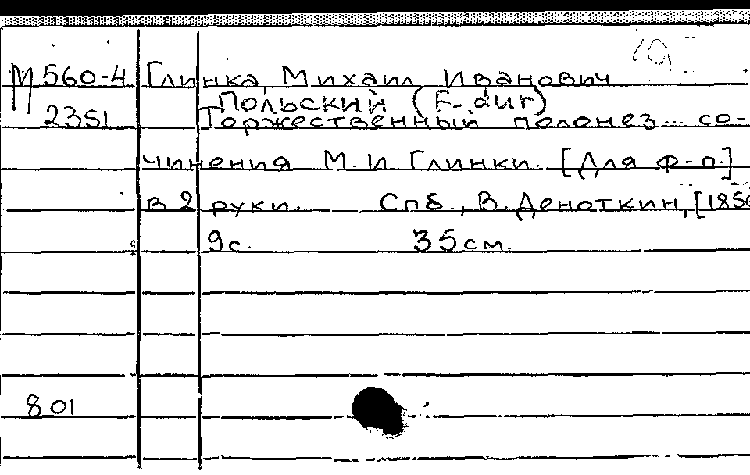 М 560-4 Глинка, Михаил Иванович
Польский (F-dur)
2351 Торжественный полонез... со-
чинения М. И Глинки. [Для ф-п.]
в 2 руки. Спб., В. Деноткин, [185
9с. 35см.
801